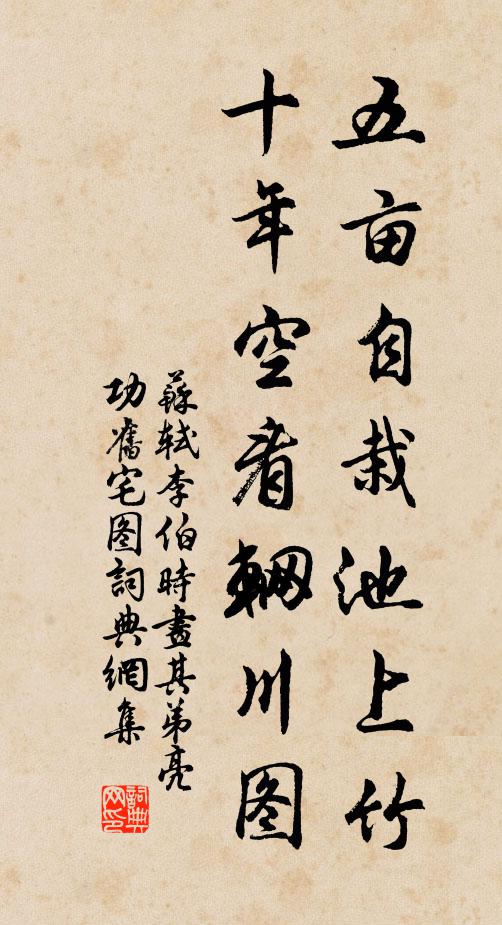 五亩自栽池上竹
十年空看輞川图
蘇軾李伯時畫其弟亮
功舊宅图詞典網集
詞典网印